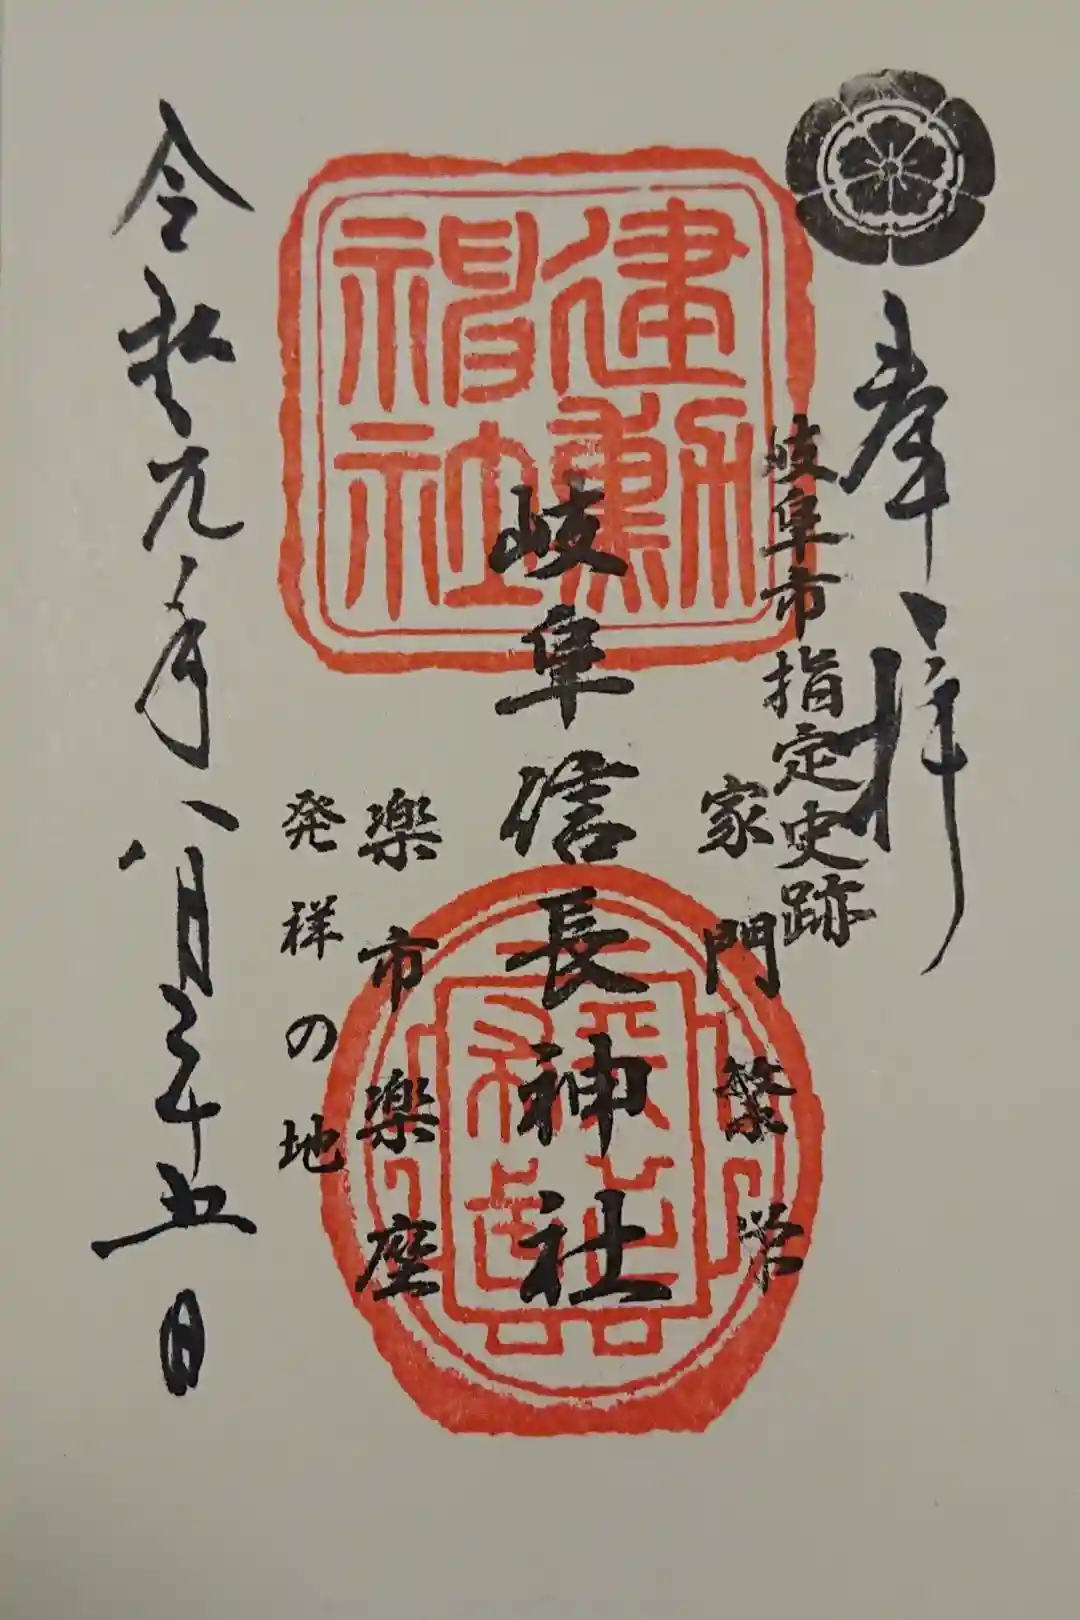 奉拝
岐阜市指定史跡
家門繁栄
建勲
神社
岐阜信長神社
楽市楽座
発祥の地
令和元年八月二十五日